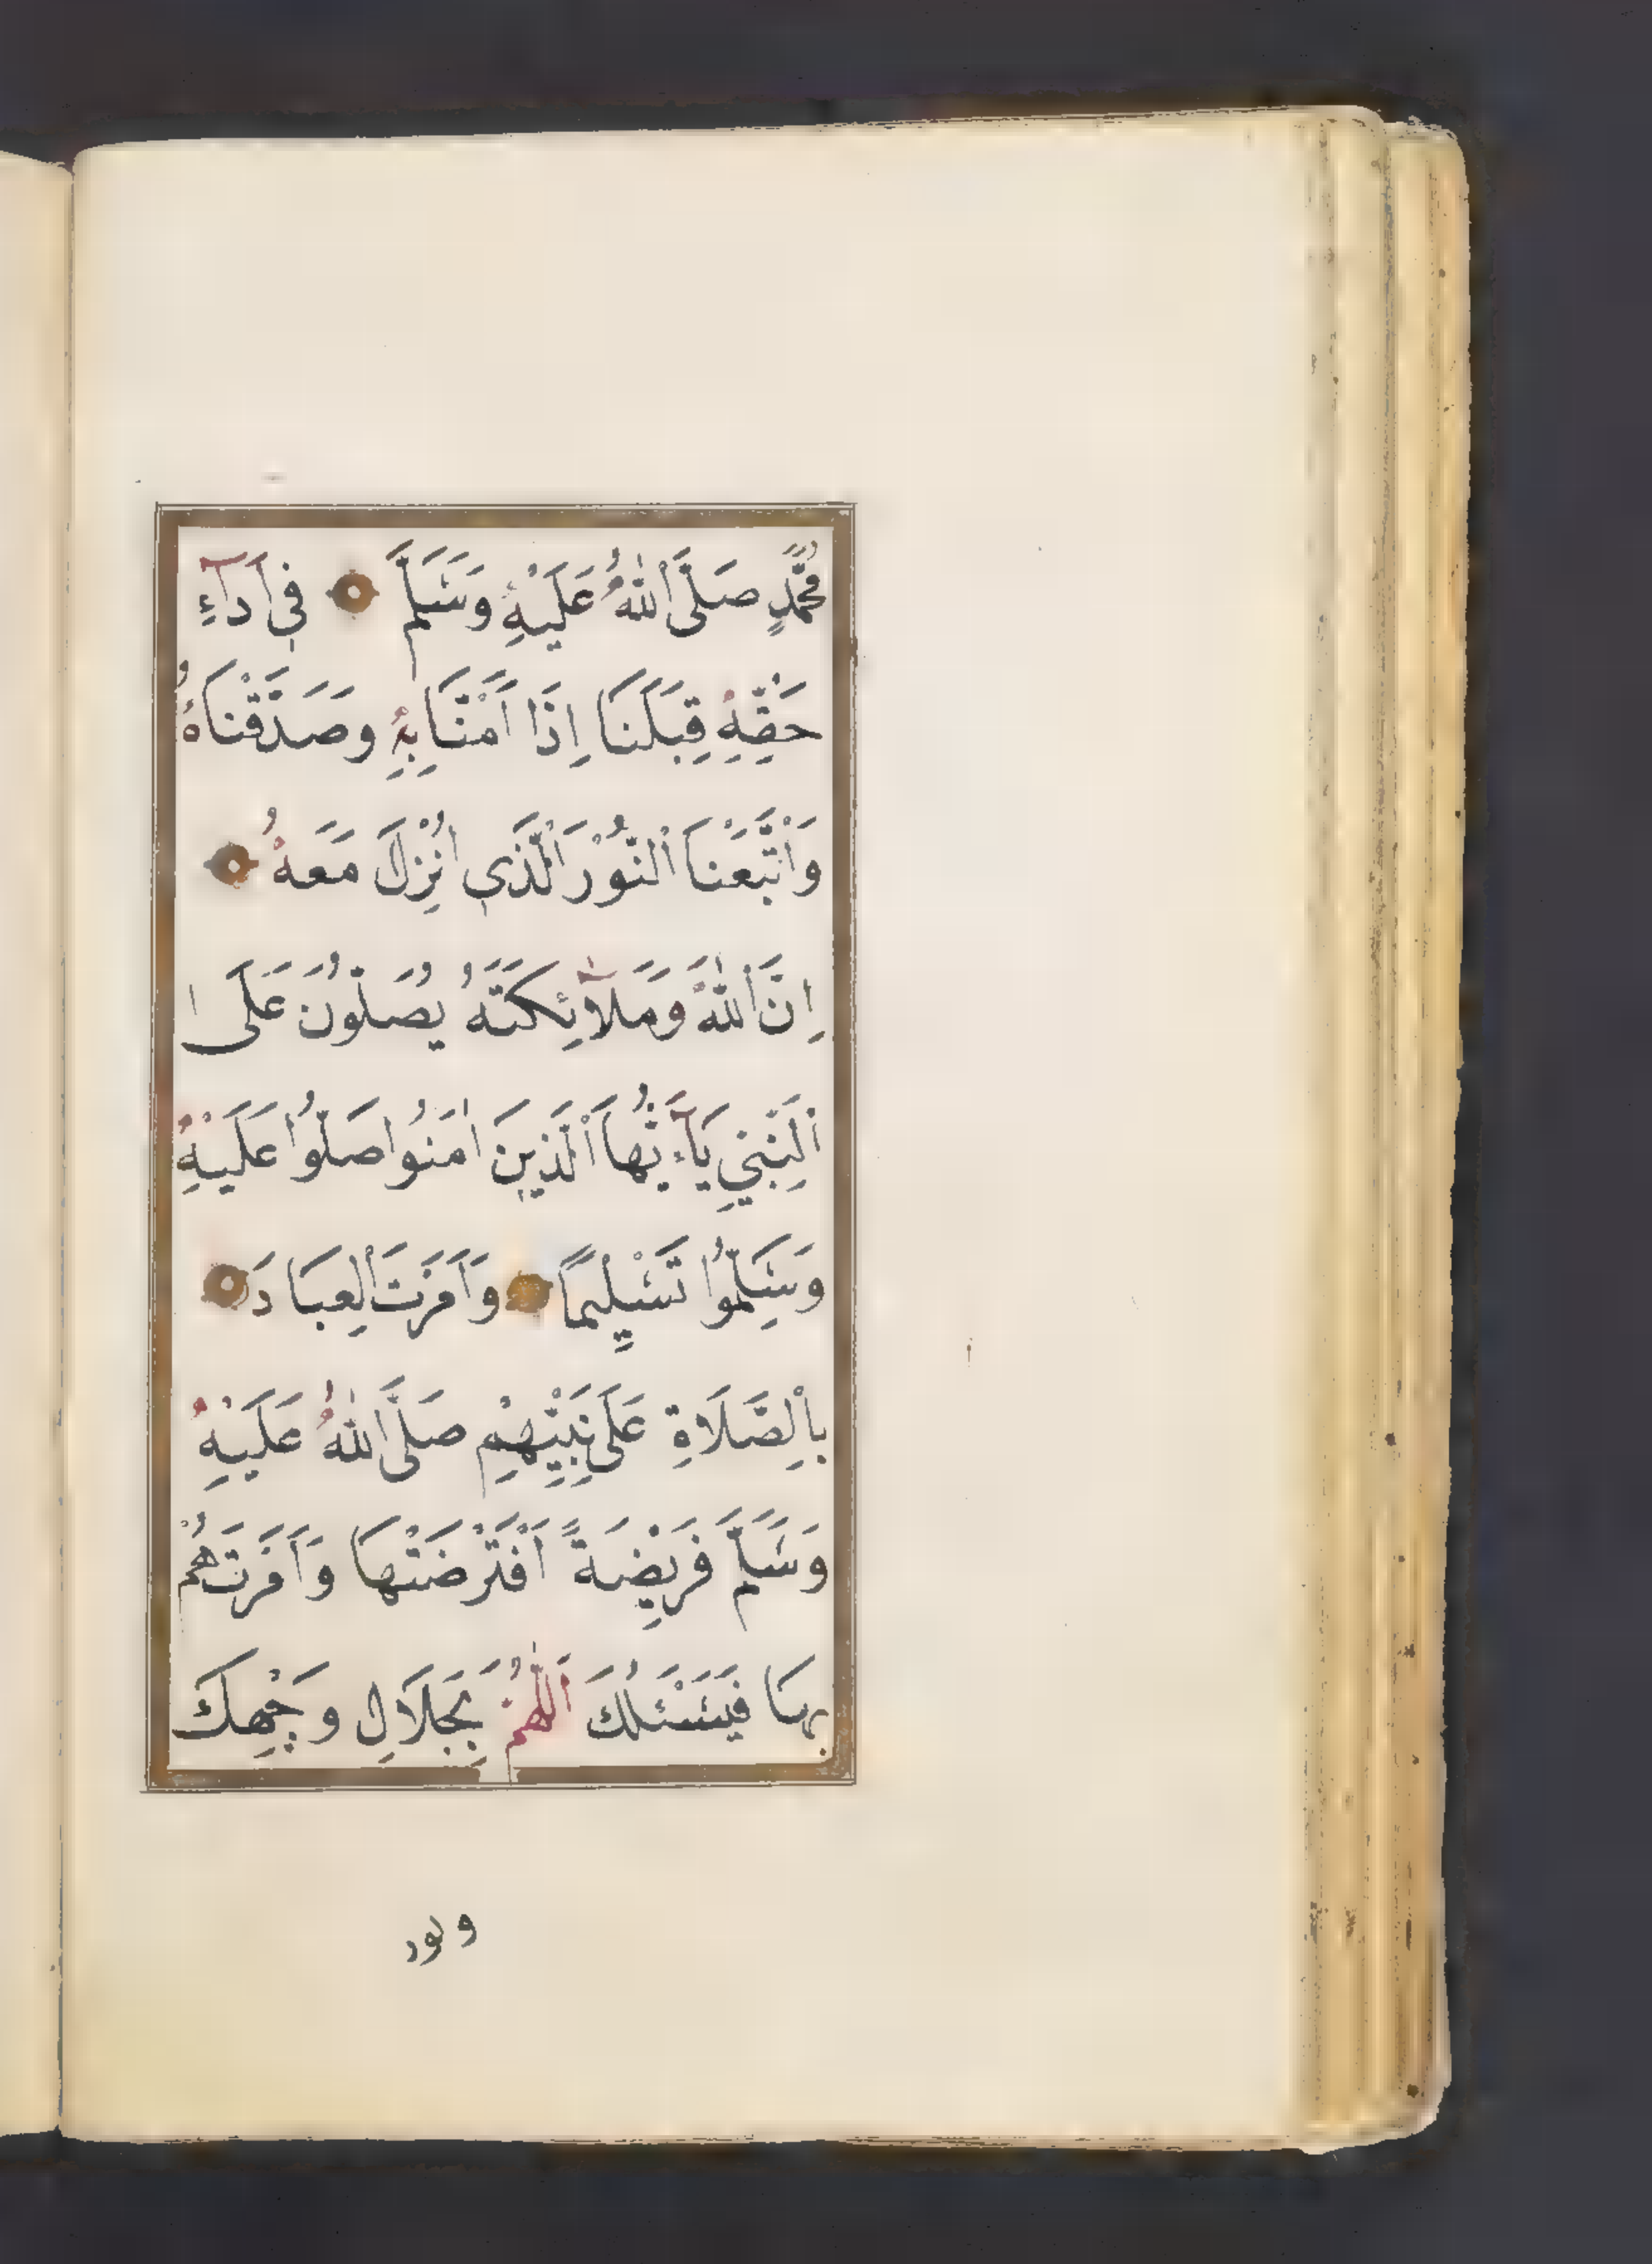 مُحَمَّدٍ صَلَّى اللّٰهُ عَلَيْهِ وَسَلَّمَ فِي اَدَآءِ
حَقِّهِ قِبَلَنَا اِذَا اٰمَنَّا بِهِ وَصَدَّقْنَاهُ
وَاتَّبَعْنَا النُّوْرَ الَّذِي اُنْزِلَ مَعَهُ
اِنَّ اللّٰهَ وَمَلَآئِكَتَهُ يُصَلُّوْنَ عَلَى
النَّبِيِّ يَآءَيُّهَا الَّذِينَ اٰمَنُوا صَلُّوا عَلَيْهِ
وَسَلِّمُوا تَسْلِيمًا وَاَمَرْتَ الْعِبَادَ
بِالصَّلَاةِ عَلَى نَبِيِّهِمْ صَلَّى اللّٰهُ عَلَيْهِ
وَسَلَّمَ فَرِيْضَةً افْتَرَضْتَهَا وَاَمَرْتَهُمْ
بِهَا فَنَسْئَلُكَ اَللّٰهُمَّ بِجَلَالِ وَجْهِكَ
ونور